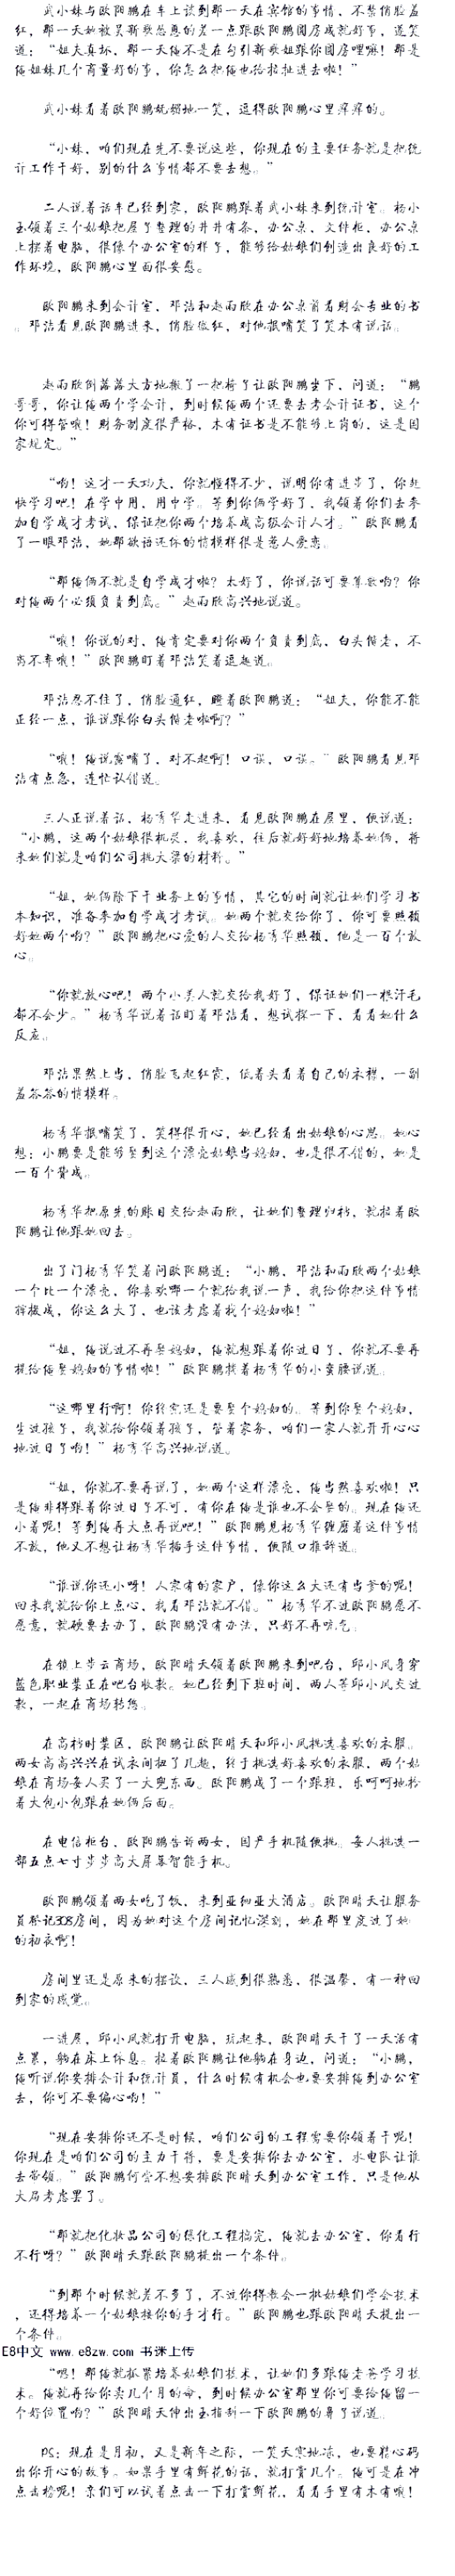 武小妹与欧阳鹏在车上谈到那一天在宾馆的事情，不禁俏脸羞
红，那一天她被吴新歌怂恿的差一点跟欧阳鹏圆房成就好事，遂笑
道：“姐夫真坏，那一天俺不是在勾引新歌姐跟你圆房哩嘛！那是
俺姐妹几个商量好的事，你怎么把俺也给招扯进去啦！”
武小妹看着欧阳鹏妩媚地一笑，逗得欧阳鹏心里痒痒的。
“小妹，咱们现在先不要说这些，你现在的主要任务就是把统
计工作干好，别的什么事情都不要去想。”
二人说着话车已经到家，欧阳鹏跟着武小妹来到统计室。杨小
玉领着三个姑娘把屋子整理的井井有条，办公桌、文件柜，办公桌
上摆着电脑，很像个办公室的样子，能够给姑娘们创造出良好的工
作环境，欧阳鹏心里面很安慰。
欧阳鹏来到会计室，邓洁和赵雨欣在办公桌前看财会专业的书
。邓洁看见欧阳鹏进来，俏脸微红，对他抿嘴笑了笑木有说话。
赵雨欣倒落落大方地搬了一把椅子让欧阳鹏坐下，问道：“鹏
哥哥，你让俺两个学会计，到时候俺两个还要去考会计证书，这个
你可得管哦！财务制度很严格，木有证书是不能够上岗的，这是国
家规定。”
“哟！这才一天功夫，你就懂得不少，说明你有进步了，你赶
快学习吧！在学中用，用中学。等到你俩学好了，我领着你们去参
加自学成才考试，保证把你两个培养成高级会计人才。”欧阳鹏看
了一眼邓洁，她那欲语还休的情模样很是惹人爱恋。
“那俺俩不就是自学成才啦？太好了，你说话可要算数哟？你
对俺两个必须负责到底。”赵雨欣高兴地说道。
“哦！你说的对，俺肯定要对你两个负责到底，白头偕老，不
离不弃哦！”欧阳鹏盯着邓洁笑着逗趣道。
邓洁忍不住了，俏脸通红，瞪着欧阳鹏道：“姐夫，你能不能
正经一点，谁说跟你白头偕老啦啊？”
“哦！俺说露嘴了，对不起啊！口误，口误。”欧阳鹏看见邓
洁有点急，连忙认错道。
三人正说着话，杨秀华走进来，看见欧阳鹏在屋里，便说道：
“小鹏，这两个姑娘很机灵，我喜欢，往后就好好地培养她俩，将
来她们就是咱们公司挑大梁的材料。”
“姐，她俩除下干业务上的事情，其它的时间就让她们学习书
本知识，准备参加自学成才考试。她两个就交给你了，你可要照顾
好她两个哟？”欧阳鹏把心爱的人交给杨秀华照顾，他是一百个放
心。
“你就放心吧！两个小美人就交给我好了，保证她们一根汗毛
都不会少。”杨秀华说着话盯着邓洁看，想试探一下，看看她什么
反应。
邓洁果然上当，俏脸飞起红霞，低着头看着自己的衣襟，一副
羞答答的情模样。
杨秀华抿嘴笑了，笑得很开心，她已经看出姑娘的心思。她心
想：小鹏要是能够娶到这个漂亮姑娘当媳妇，也是很不错的，她是
一百个赞成。
杨秀华把原先的账目交给赵雨欣，让她们整理归档，就招着欧
阳鹏让他跟她回去。
出了门杨秀华笑着问欧阳鹏道：“小鹏，邓洁和雨欣两个姑娘
一个比一个漂亮，你喜欢哪一个就给我说一声，我给你把这件事情
撺掇成，你这么大了，也该考虑着找个媳妇啦！”
“姐，俺说过不再娶媳妇，俺就想跟着你过日子，你就不要再
提给俺娶媳妇的事情啦！”欧阳鹏搂着杨秀华的小蛮腰说道。
“这哪里行啊！你终究还是要娶个媳妇的。等到你娶个媳妇，
生过孩子，我就给你领着孩子，管着家务，咱们一家人就开开心心
地过日子哟！”杨秀华高兴地说道。
“姐，你就不要再说了，她两个这样漂亮，俺当然喜欢啦！只
是俺非得跟着你过日子不可，有你在俺是谁也不会娶的。现在俺还
小着呢！等到俺再大点再说吧！”欧阳鹏见杨秀华缠磨着这件事情
不放，他又不想让杨秀华插手这件事情，便随口推辞道。
“谁说你还小呀！人家有的家户，像你这么大还有当爹的呢！
回来我就给你上点心，我看邓洁就不错。”杨秀华不过欧阳鹏愿不
愿意，就硬要去办了，欧阳鹏没有办法，只好不再吭气。
在镇上步云商场，欧阳晴天领着欧阳鹏来到吧台，邱小凤身穿
蓝色职业装正在吧台收款。她已经到下班时间，两人等邱小凤交过
款，一起在商场转悠。
在高档时装区，欧阳鹏让欧阳晴天和邱小凤挑选喜欢的衣服。
两女高高兴兴在试衣间扭了几趟，终于挑选好喜欢的衣服，两个姑
娘在商场每人买了一大兜东西。欧阳鹏成了一个跟班，乐呵呵地拎
着大包小包跟在她俩后面。
在电信柜台，欧阳鹏告诉两女，国产手机随便挑。每人挑选一
部五点七寸步步高大屏幕智能手机。
欧阳鹏领着两女吃了饭，来到亚细亚大酒店。欧阳晴天让服务
员登记308房间，因为她对这个房间记忆深刻，她在那里度过了她
的初夜啊！
房间里还是原来的摆设，三人感到很熟悉，很温馨，有一种回
到家的感觉。
一进屋，邱小凤就打开电脑，玩起来，欧阳晴天干了一天活有
点累，躺在床上休息。招着欧阳鹏让他躺在身边，问道：“小鹏，
俺听说你安排会计和统计员，什么时候有机会也要安排俺到办公室
去，你可不要偏心哟！”
“现在安排你还不是时候，咱们公司的工程需要你领着干呢！
你现在是咱们公司的主力干将，要是安排你去办公室，水电队让谁
去带领。”欧阳鹏何尝不想安排欧阳晴天到办公室工作，只是他从
大局考虑罢了。
“那就把化妆品公司的绿化工程搞完，俺就去办公室，你看行
不行呀？”欧阳晴天跟欧阳鹏提出一个条件。
“到那个时候就差不多了，不过你得教会一批姑娘们学会技术
，还得培养一个姑娘接你的手才行。”欧阳鹏也跟欧阳晴天提出一
个条件。
E8中文 www.e8zw.com 书迷上传
“嗯！那俺就抓紧培养姑娘们技术，让她们多跟俺老爸学习技
术。俺就再给你卖几个月的命，到时候办公室那里你可要给俺留一
个好位置哟？”欧阳晴天伸出玉指刮一下欧阳鹏的鼻子说道。
PS：现在是月初，又是新年之际，一笑天寒地冻，也要精心码
出你开心的故事。如果手里有鲜花的话，就打赏几个。俺可是在冲
点击榜呢！亲们可以试着点击一下打赏鲜花，看看手里有木有哦！